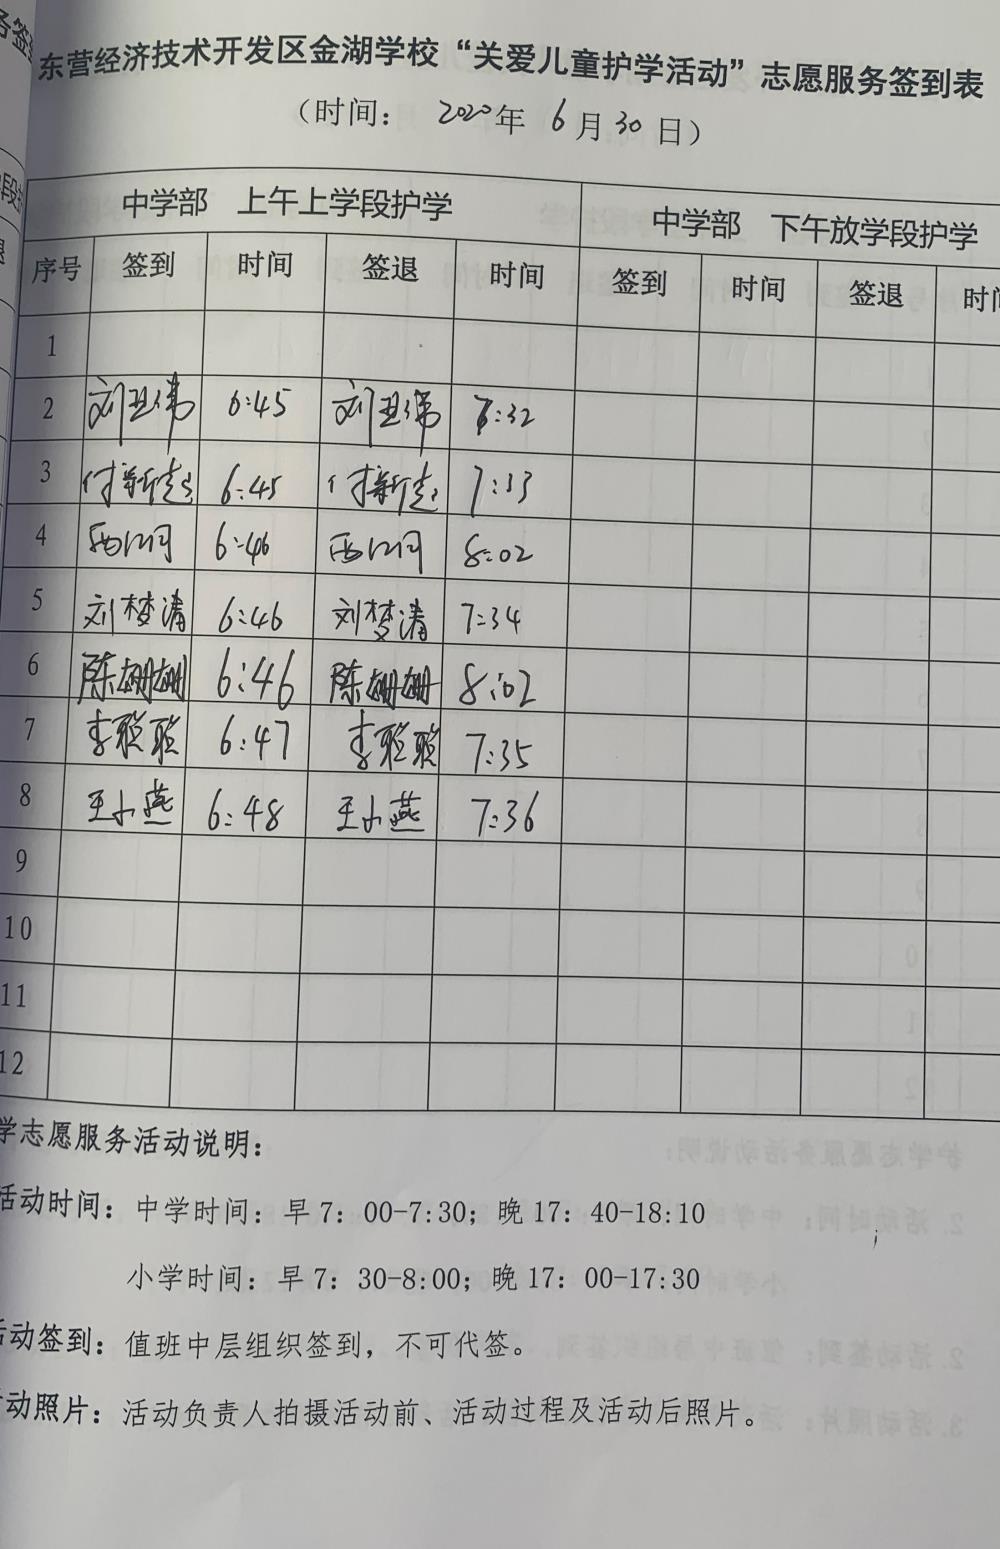 东营经济技术开发区金湖学校“关爱儿童护学活动”志愿服务签到表
（时间： 2020年 6月30日）
中学部 上午上学段护学 中学部 下午放学段护学
序号 签到 时间 签退 时间 签到 时间 签退 时间
1
2 6:45 7:32
3 付新超 6:45 付新超 7:33
4 6:46 8:02
5 刘梦涛 6:46 刘梦涛 7:34
6 陈姗姗 6:46 陈姗姗 8:02
7 李聪聪 6:47 李聪聪 7:35
8 王小燕 6:48 王小燕 7:36
9
10
11
12
学志愿服务活动说明：
活动时间：中学时间：早7：00-7:30；晚17：40-18:10
小学时间：早7：30-8:00；晚17：00-17:30
活动签到：值班中层组织签到，不可代签。
活动照片：活动负责人拍摄活动前、活动过程及活动后照片。